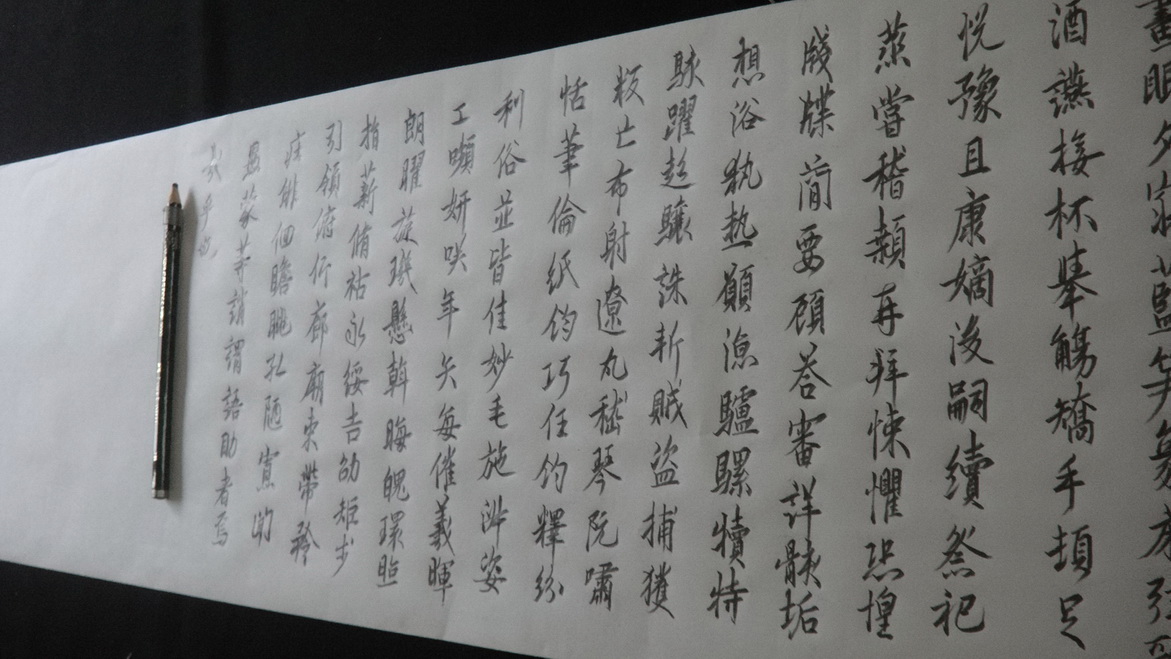 畫眠夕寐藍笋象床弦
酒讌接杯舉觴矯手頓足
悅豫且康嫡後嗣續祭祀
蒸嘗稽顙再拜悚懼恐惶
牋牒簡要顧荅審詳骸垢
想浴執熱願涼驢騾犢特
駭躍超驤誅斬賊盜捕獲
叛亡布射遼丸嵇琴阮嘯
恬筆倫紙鈞巧任釣釋紛
利俗並皆佳妙毛施淑姿
工嚬妍咲年矢每催羲暉
朗曜旋璣懸斡晦魄環照
指薪脩祜永綏吉劭矩步
引領俯仰廊廟束帶矜
庄徘徊瞻眺孤陋寡聞
愚蒙等誚謂語助者焉
哉乎也